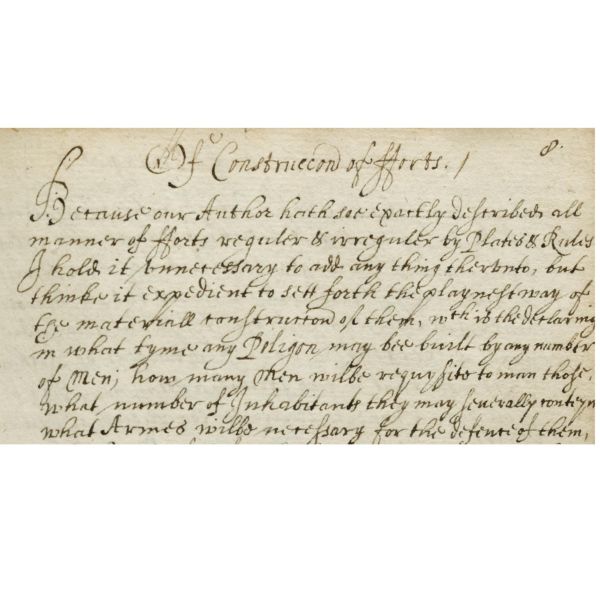 8.
Of ye Construccon of fforts. /
Because our Author hath soe exactly described all
manner of fforts reguler & irreguler by Plates & Rules
I hold it vnnecessary to add any thing thervnto, but
thinke it expedient to sett forth the playnest way of
the materiall construccon of them, wch is the declaring
in what tyme any Poligon may bee built by any number
of Men; how many Men wilbe requysite to man those.
what number of Inhabitants they may seuerally conteyn
what Armes wilbe necessary for the defence of them,